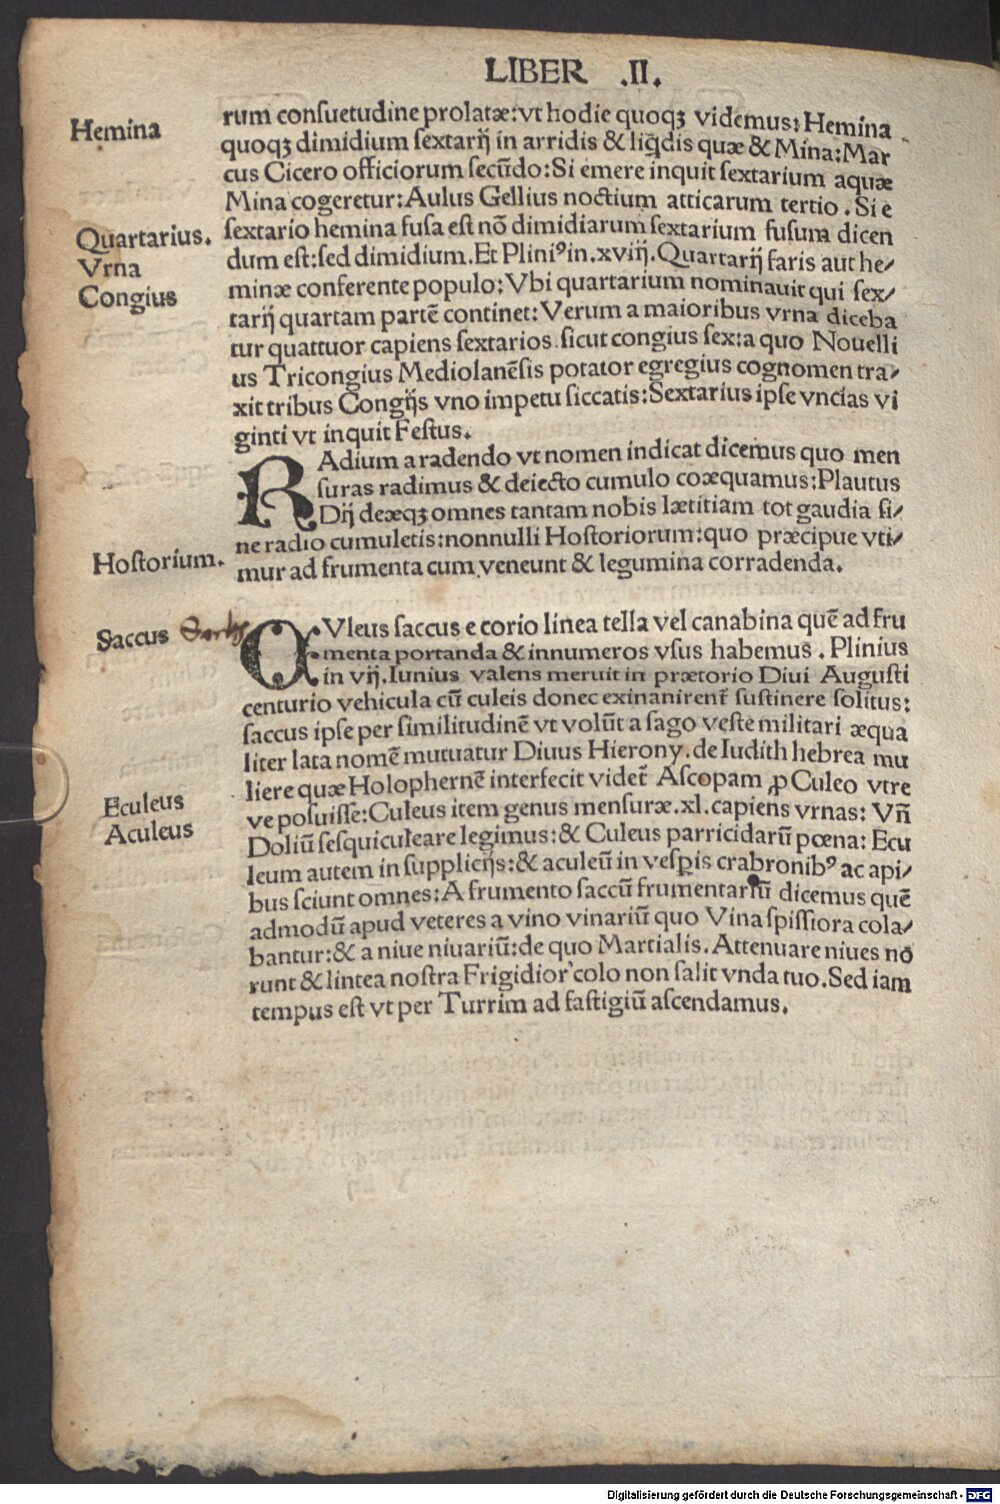 LIBER .II.
Hemina
rum consuetudine prolatæ:vt hodie quoqꝫ videmus: Hemina
quoqꝫ dimidium sextarij in arridis & liq̇dis quæ & Mina: Mar
cus Cicero officiorum secūdo: Si emere inquit sextarium aquæ
Mina cogeretur: Aulus Gellius noctium atticarum tertio. Si e
sextario hemina fusa est nō dimidiarum sextarium fusum dicen
dum est: sed dimidium. Et Pliniꝰ in .xviij. Quartarij faris aut he/
minæ conferente populo: Vbi quartarium nominauit qui sex/
tarij quartam partē continet: Verum a maioribus vrna diceba
tur quattuor capiens sextarios. sicut congius sex: a quo Nouelli
us Tricongius Mediolanēsis potator egregius cognomen tra/
xit tribus Congijs vno impetu siccatis: Sextarius ipse vncias vi
ginti vt inquit Festus.
Quartarius.
Vrna
Congius
RAdium a radendo vt nomen indicat dicemus quo men
suras radimus & deiecto cumulo coæquamus: Plautus
Dij deæqꝫ omnes tantam nobis lætitiam tot gaudia si/
ne radio cumuletis: nonnulli Hostoriorum: quo præcipue vti/
mur ad frumenta cum veneunt & legumina corradenda.
Hostorium.
Saccus
CVleus saccus e corio linea tella vel canabina quē ad fru
menta portanda & innumeros vsus habemus. Plinius
in vij. Iunius valens meruit in prætorio Diui Augusti
centurio vehicula cū culeis donec exinanirent̃ sustinere solitus:
saccus ipse per similitudinē vt volūt a sago veste militari æqua
liter lata nomē mutuatur Diuus Hierony. de Iudith hebrea mu
liere quæ Holophernē interfecit videt̃ Ascopam ꝓ Culeo vtre
ve posuisse: Culeus item genus mensuræ .xl. capiens vrnas: Vñ
Doliū sesquiculeare legimus: & Culeus parricidarū pœna: Ecu
leum autem in supplicijs: & aculeū in vesꝑis crabronibꝰ ac api/
bus sciunt omnes: A frumento saccū frumentariū dicemus quē
admodū apud veteres a vino vinariū quo Vina spissiora cola/
bantur: & a niue niuariū: de quo Martialis. Attenuare niues no
runt & lintea nostra Frigidior colo non salit vnda tuo. Sed iam
tempus est vt per Turrim ad fastigiū ascendamus.
Eculeus
Aculeus
Digitalisierung gefördert durch die Deutsche Forschungsgemeinschaft - DFG